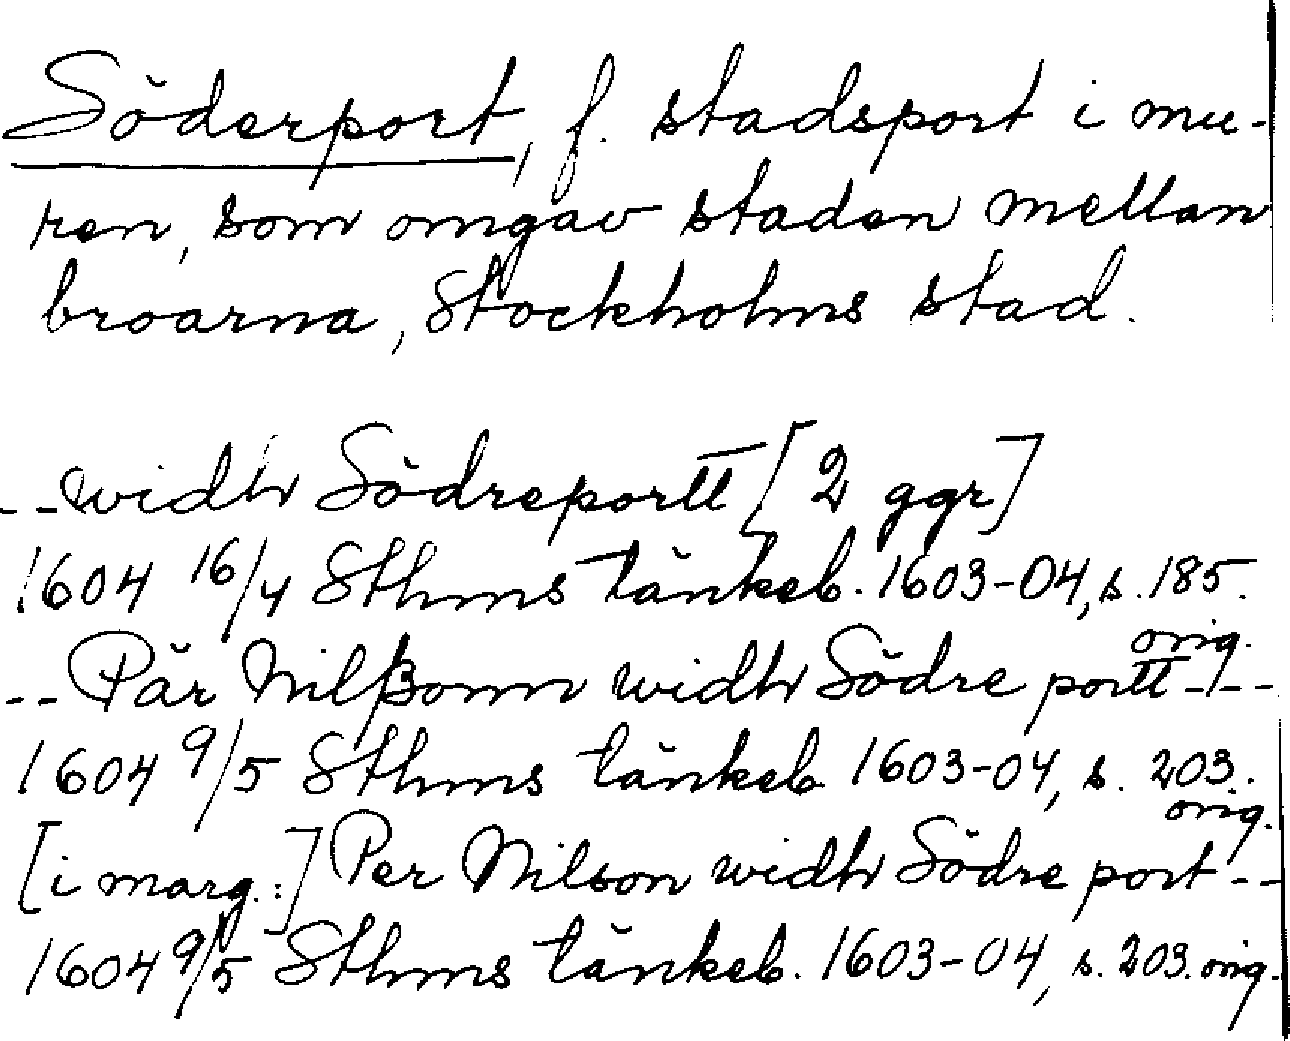 Söderport, f. stadsport i mu-
ren, som omgav staden mellan
broarna, Stockholms stad.
--widh Södreportt [2 ggr]
1604 16/4 Sthms tänkeb. 1603-04, s. 185.
orig.
--Pär Nilßonn widh Södre portt---
1604 9/5 Sthms tänkeb 1603-04, s. 203.
orig.
[i marg.:] Per Nilson widh Södre port--
1604 9/5 Sthms tänkeb. 1603-04, s. 203. orig.